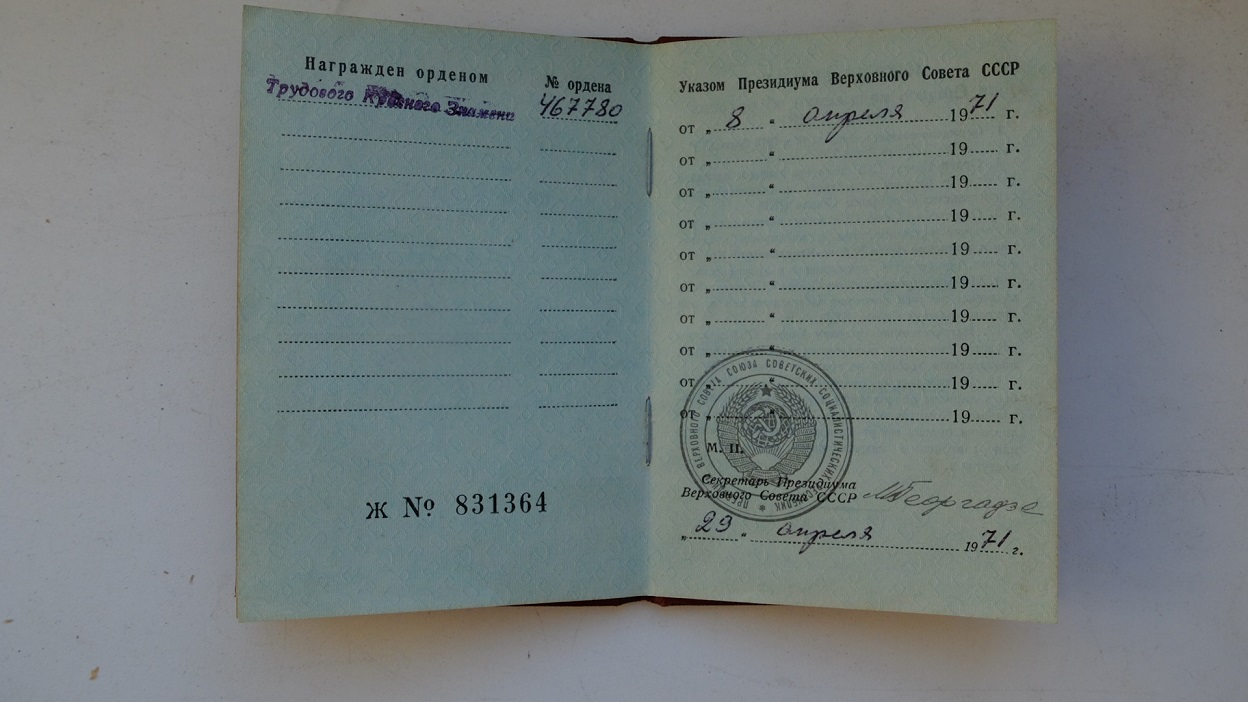 Награжден орденом
№ ордена
Трудового Красного Знамени
467780
Ж № 831364
Указом Президиума Верховного Совета СССР
от „ 8 “ апреля 1971 г.
от „ “ 19 г.
от „ “ 19 г.
от „ “ 19 г.
от „ “ 19 г.
от „ “ 19 г.
от „ “ 19 г.
от „ “ 19 г.
от „ “ 19 г.
от „ “ 19 г.
ВЕРХОВНОГО СОВЕТА СОЮЗА СОВЕТСКИХ СОЦИАЛИСТИЧЕСКИХ
М. П.
Секретарь Президиума
Верховного Совета СССР
МГеоргадзе
„ 29 “ апреля 1971 г.